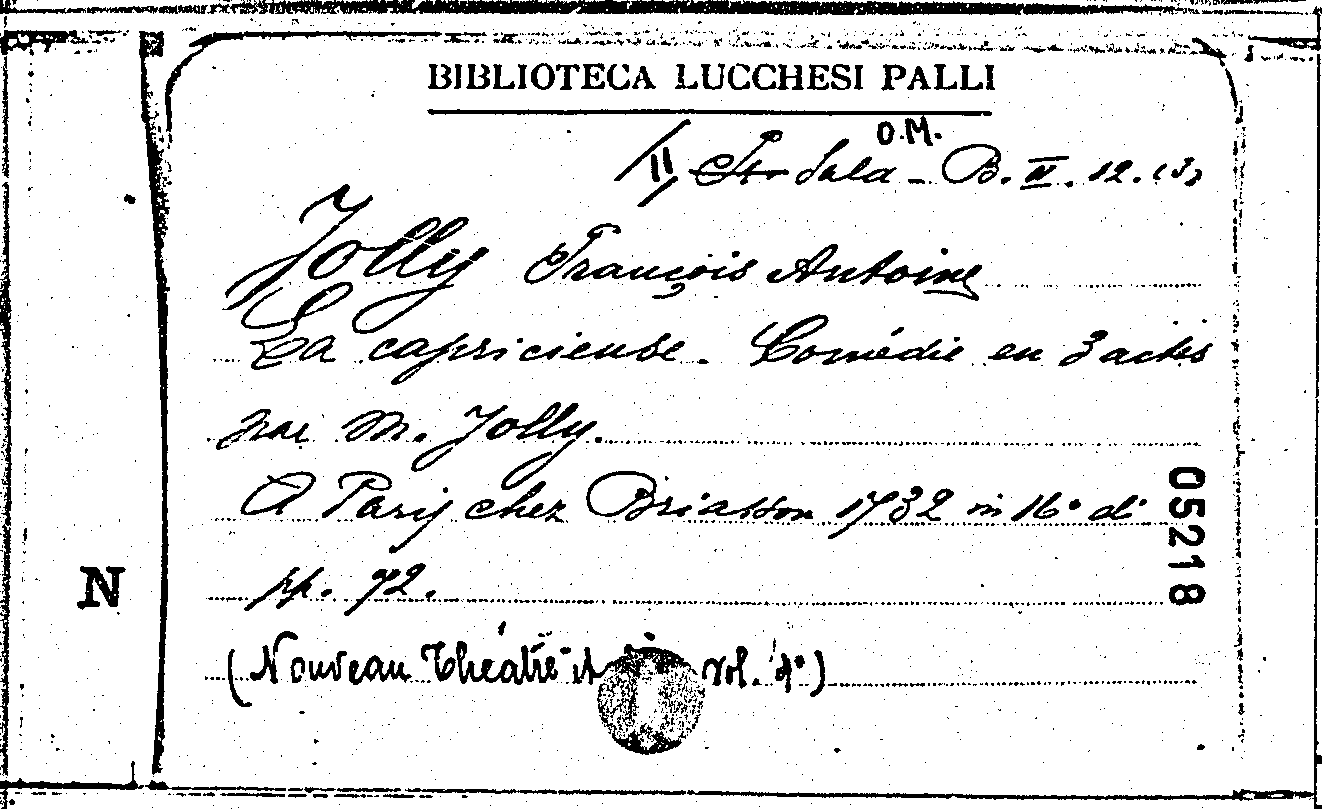 BIBLIOTECA LUCCHESI PALLI
O.M.
II, Sala - B. II. 12. (3)
Jolly François Antoine
La capricieuse. Comédie en 3 actes
par M. Jolly.
A Paris chez Briasson 1732 in 16° di
pp. 72.
(Nouveau Théatre it vol. 4°)
05218
N